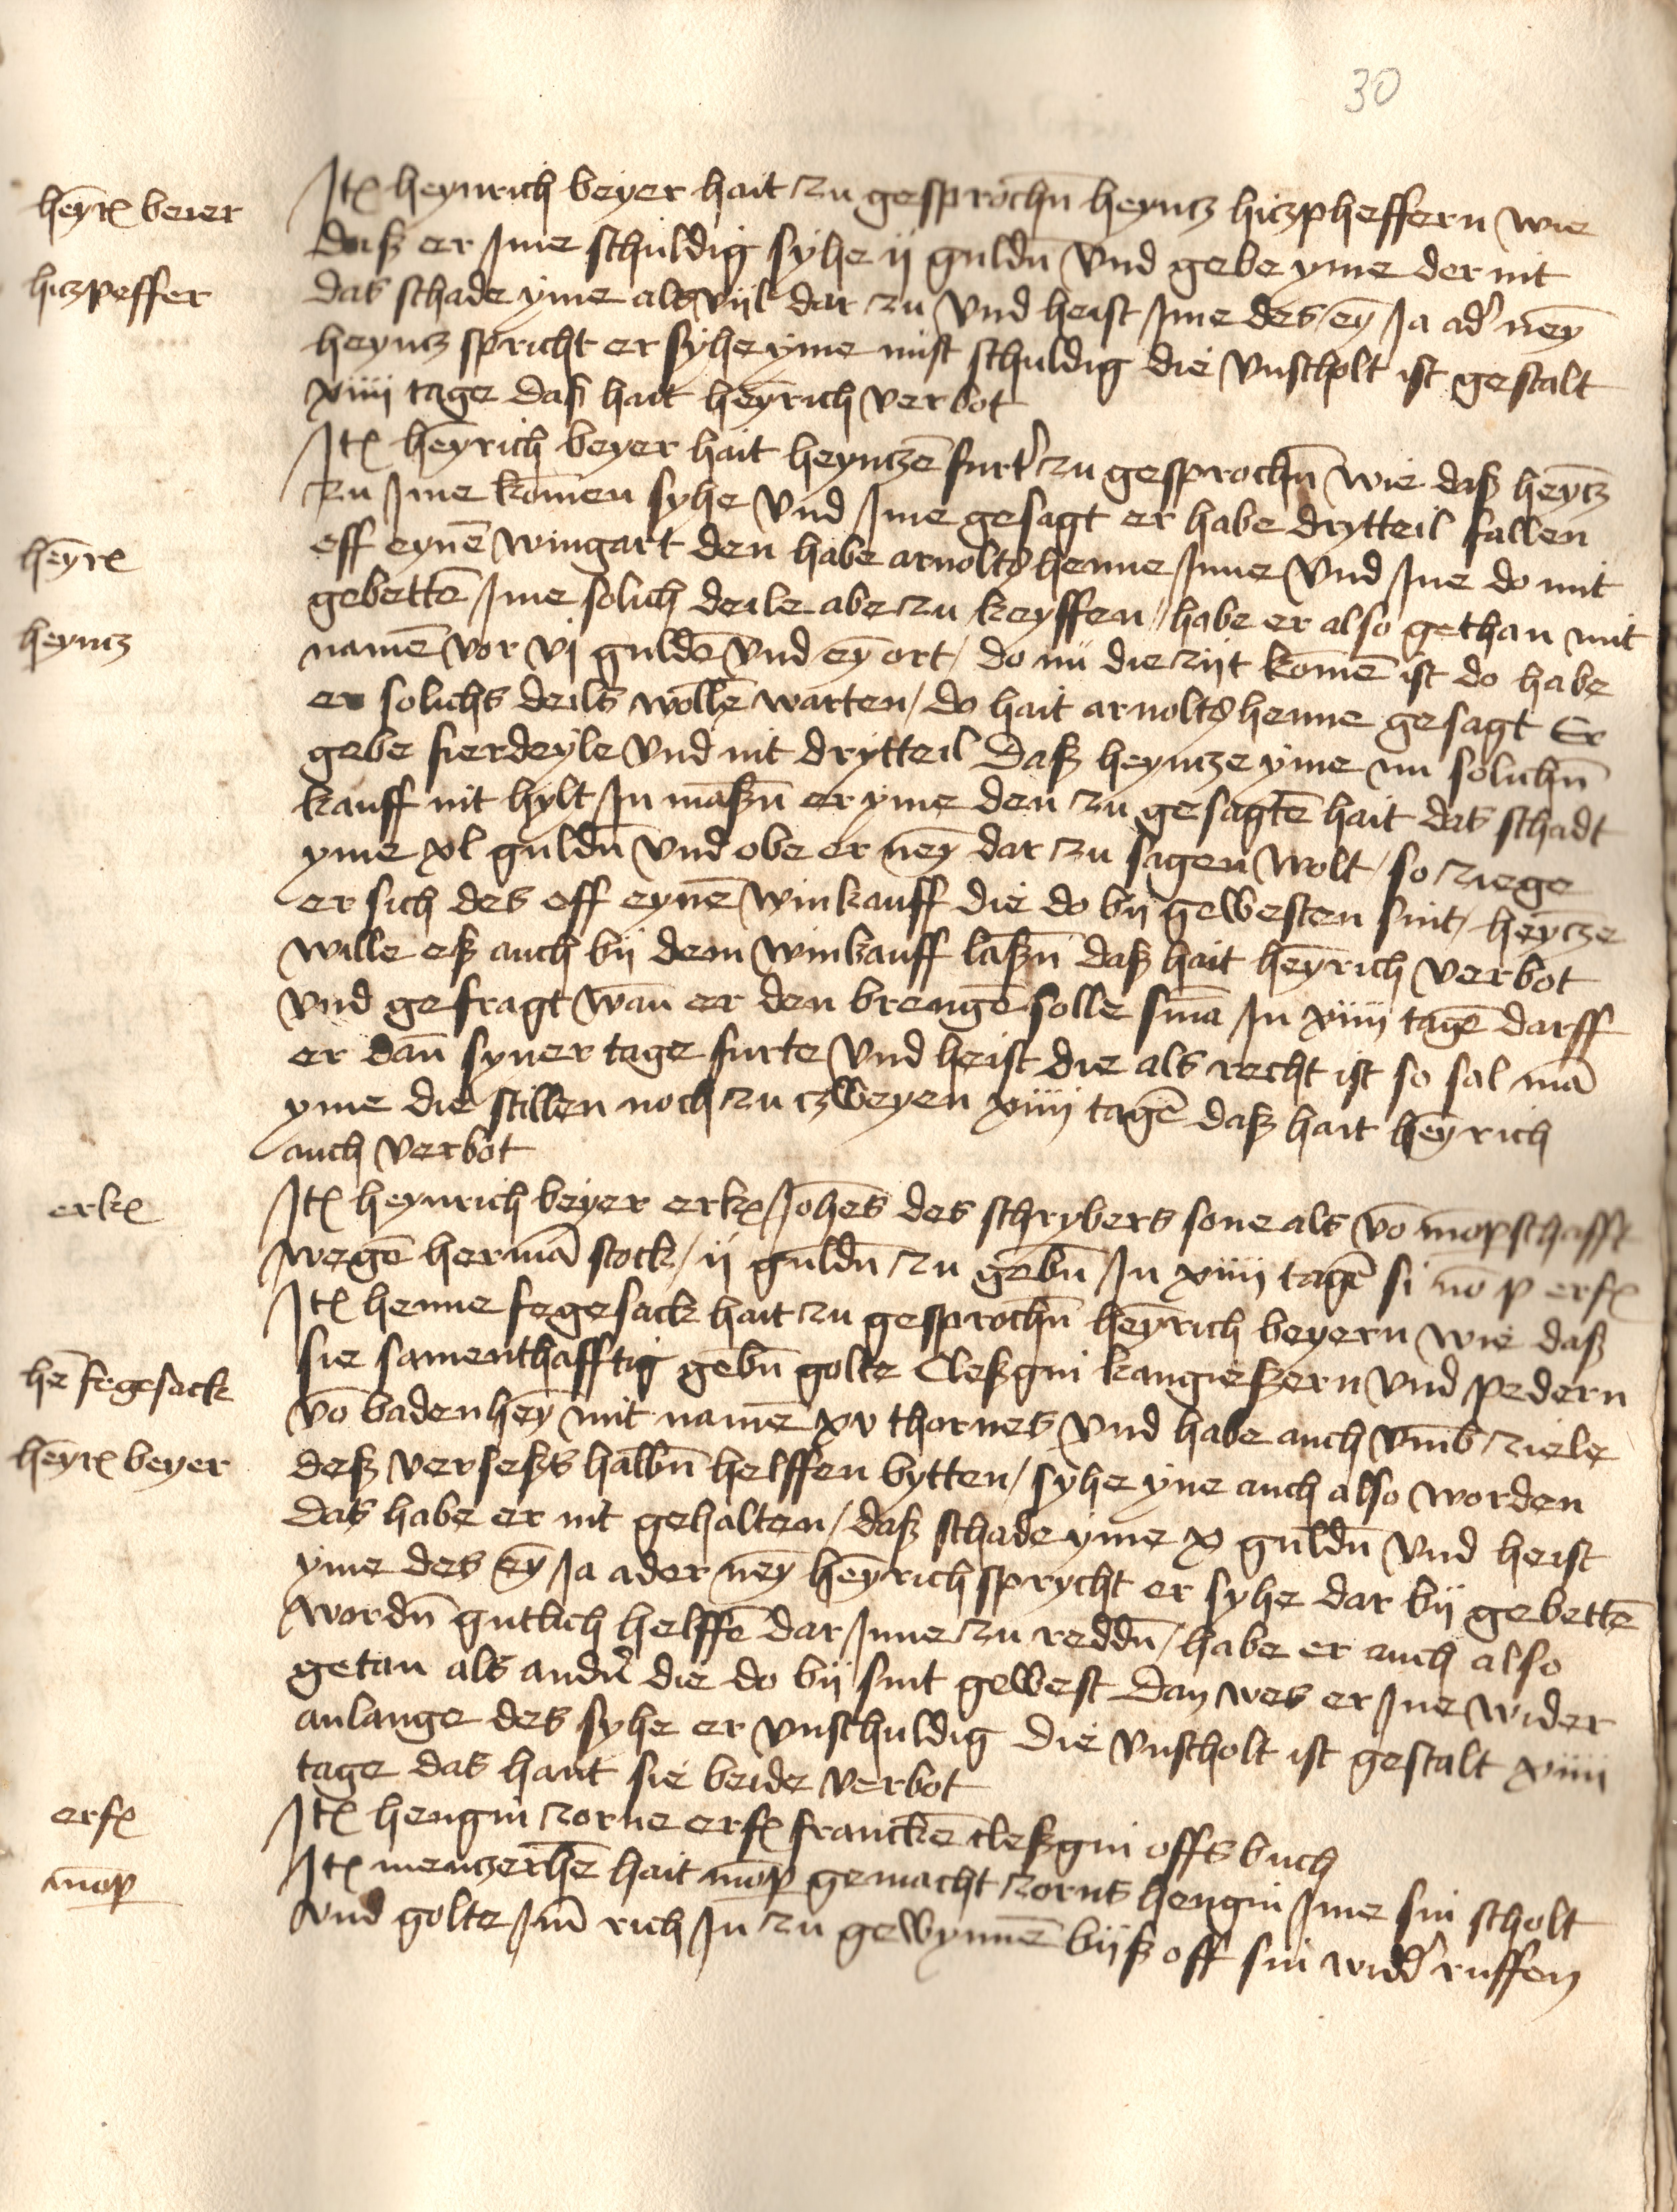 30
heyr̄ beier
Jtꝭ heynrich beyer hait zu gesprochn̄ heyncz hiczpheffern wie
daß er Jme schuldig syhe ij guldn̄ vnd gebe yme der nit
hiczpeffer
das schade yme als vijl dar zu vnd heist Jme des eȳ Ja ad' neȳ
heyncz spricht er syhe yme nüst schuldig die vnscholt ist gestalt
xiiij tage daß hait heȳrich verbot
Jtꝭ heȳrich beyer hait heynczē furt' zu gesprochn̄ wie daß heȳcz
zu Jme kom̄en syhe vnd Jme gesagt er habe drytteil fallen
heyr̄
eff eynē wingart den habe arnolts henne Jnne vnd Jne do mit
gebettē Jme solich deile abe zu keyffen / habe er also gethan mit
heyncz
namē vor vj guldē vnd eȳ ort / do nü die zijt komē ist do habe
er solichs deils wollē warten / do hait arnolts henne gesagt Er
gebe fierdeyle vnd nit drytteil Daß heyncze yme nü solichn̄
kauff nit hylt Jn maßn̄ er yme den zu gesagtē hait das schadt
yme xl guldn̄ vnd obe er neȳ dar zu sagen wolt / so ziege
er sich des off eynē winkauff die do bij gewesten sint / heȳcze
wille eß auch bij dem winkauff laßn̄ daß hait heȳrich verbot
vnd gefragt wan̄ er den brengē solle sn̄ia Jn xiiij tagē darff
er dan̄ syner tage furte vnd heist die als recht ist so sal mā
yme die stillen noch zu czweyen xiiij tagē daß hait heȳrich
auch verbot
erkꝭ
Jtꝭ heynrich beyer erkꝭ Joh̄es des schrybers sone als vō mōpschafft
wegē hermā stock / ij guldn̄ zu gebn̄ Jn xiiij tagē si nō p erfꝭ
Jtꝭ henne fegesack hait zu gesprochn̄ heȳrich beyern wie daß
hē fegesack
sie samenthafftig gebn̄ golte Cleßgin kangießern vnd pedern
vō badenheȳ mit namē xv thornes vnd habe auch vmb ziele
heyr̄ beyer
deß verseßs halbn̄ helffen bytten / syhe yne auch also worden
das habe er nit gehalten / daß schade yme x guldn̄ vnd heist
yme des eȳ Ja ader neȳ heȳrich sprycht er syhe dar bij gebettē
wordn̄ gutlich helffē dar Jnne zu reddn̄ / habe er auch also
getan als andn̄ die do bij sint gewest Dan wes er Jne wider
anlange des syhe er vnschuldig die vnscholt ist gestalt xiiij
tage das hant sie beide verbot
erfꝭ
Jtꝭ hengin zorne erfꝭ franckē cleßgin offs buch
mōp
Jtꝭ menczerhē hait mōp gemacht zorns hengin Jme sin scholt
vnd golte Jm̄ rich Jn zu gewynnē bijß off sin widd' ruffen